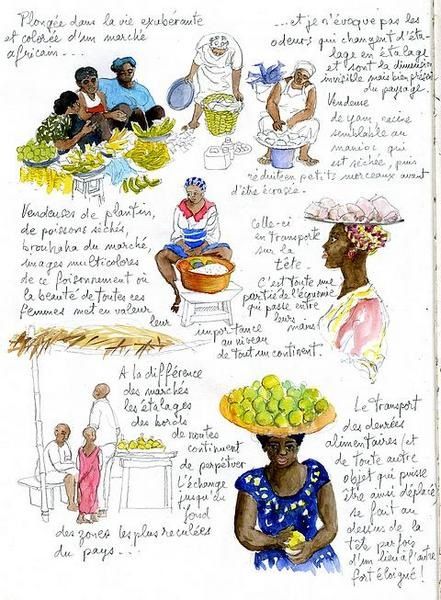 Plongée dans la vie exubérante
et colorée d'un marché
africain...
...et je n'évoque pas les
odeurs qui changent d'éta-
lage en étalage
et sont la dimension
invisible mais bien présente
du paysage.
Vendeuse
de yam, racine
semblable au
manioc qui
est séchée, puis
réduite en petits morceaux avant
d'être écrasée.
Vendeuses de plantin,
de poissons séchés,
brouhaha du marché,
images multicolores
de ce foisonnement où
la beauté de toutes ces
femmes met en valeur
leur importance
au niveau
de tout un continent.
Celle-ci
en transporte
sur la
tête.
C'est toute une
partie de l'économie
qui passe entre
leurs mains
A la différence
des marchés
les étalages
des bords
de routes
continuent
de perpétuer
l'échange
jusqu'au
fond
des zones les plus reculées
du pays...
Le transport
des denrées
alimentaires (et
de toute autre
objet qui puisse
être ainsi déplacé)
se fait au
dessus de la
tête parfois
d'un lieu à l'autre
fort éloigné!